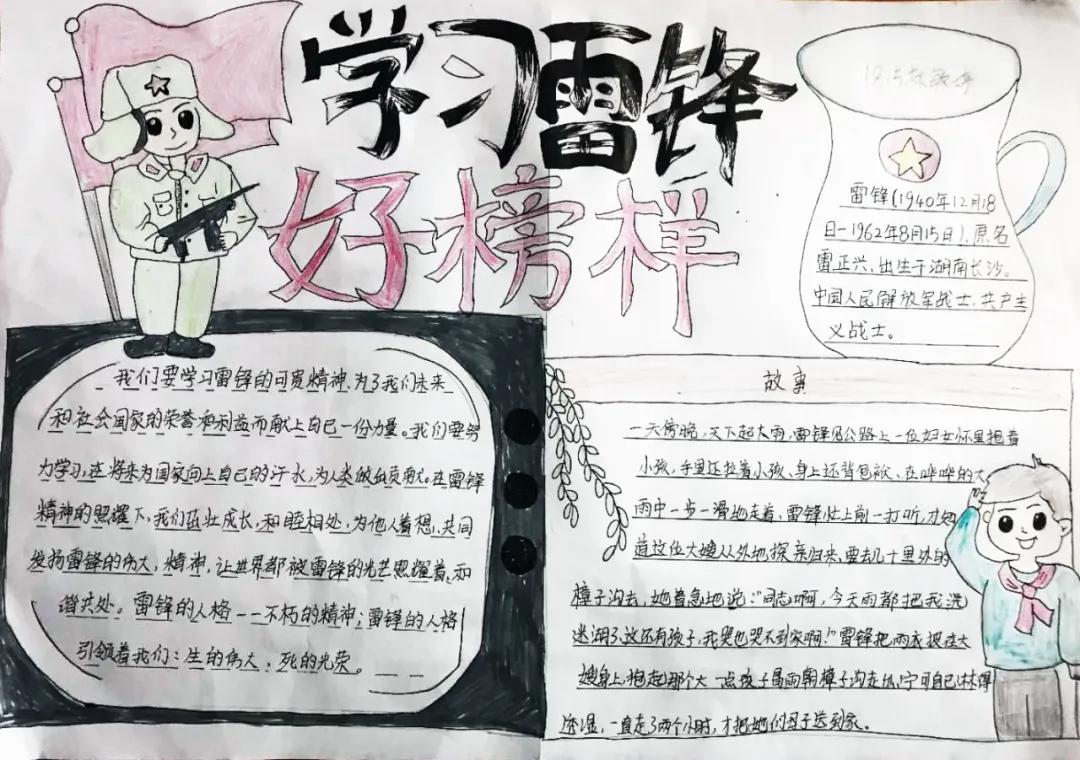 学习雷锋
好榜样
雷锋(1940年12月18
日-1962年8月15日),原名
雷正兴,出生于湖南长沙。
中国人民解放军战士,共产主
义战士。
我们要学习雷锋的可贵精神,为了我们未来
和社会国家的荣誉和利益而献上自己一份力量。我们要努
力学习,在将来为国家向上自己的汗水,为人类做出贡献。在雷锋
精神的照耀下,我们茁壮成长,和睦相处,为他人着想,共同
发扬雷锋的伟大,精神,让世界都被雷锋的光芒照耀着,和
谐共处。雷锋的人格——不朽的精神;雷锋的人格
引领着我们:生的伟大,死的光荣。
故事
一天傍晚,天下起大雨,雷锋见公路上一位妇女怀里抱着
小孩,手里还拉着小孩,身上还背包袱,在哗哗的大
雨中一步一滑地走着,雷锋赶上前一打听,才知
道这位大嫂从外地探亲归来,要去几十里外的
樟子沟去,她着急地说:"同志啊,今天雨都把我浇
迷湖了,这还有孩子,我哭也哭不到家啊!"雷锋把雨衣披在大
嫂身上,抱起那个大一点孩子冒雨朝樟子沟走去,宁可自己淋得
透湿,一直走了两个小时,才把她们母子送到家。